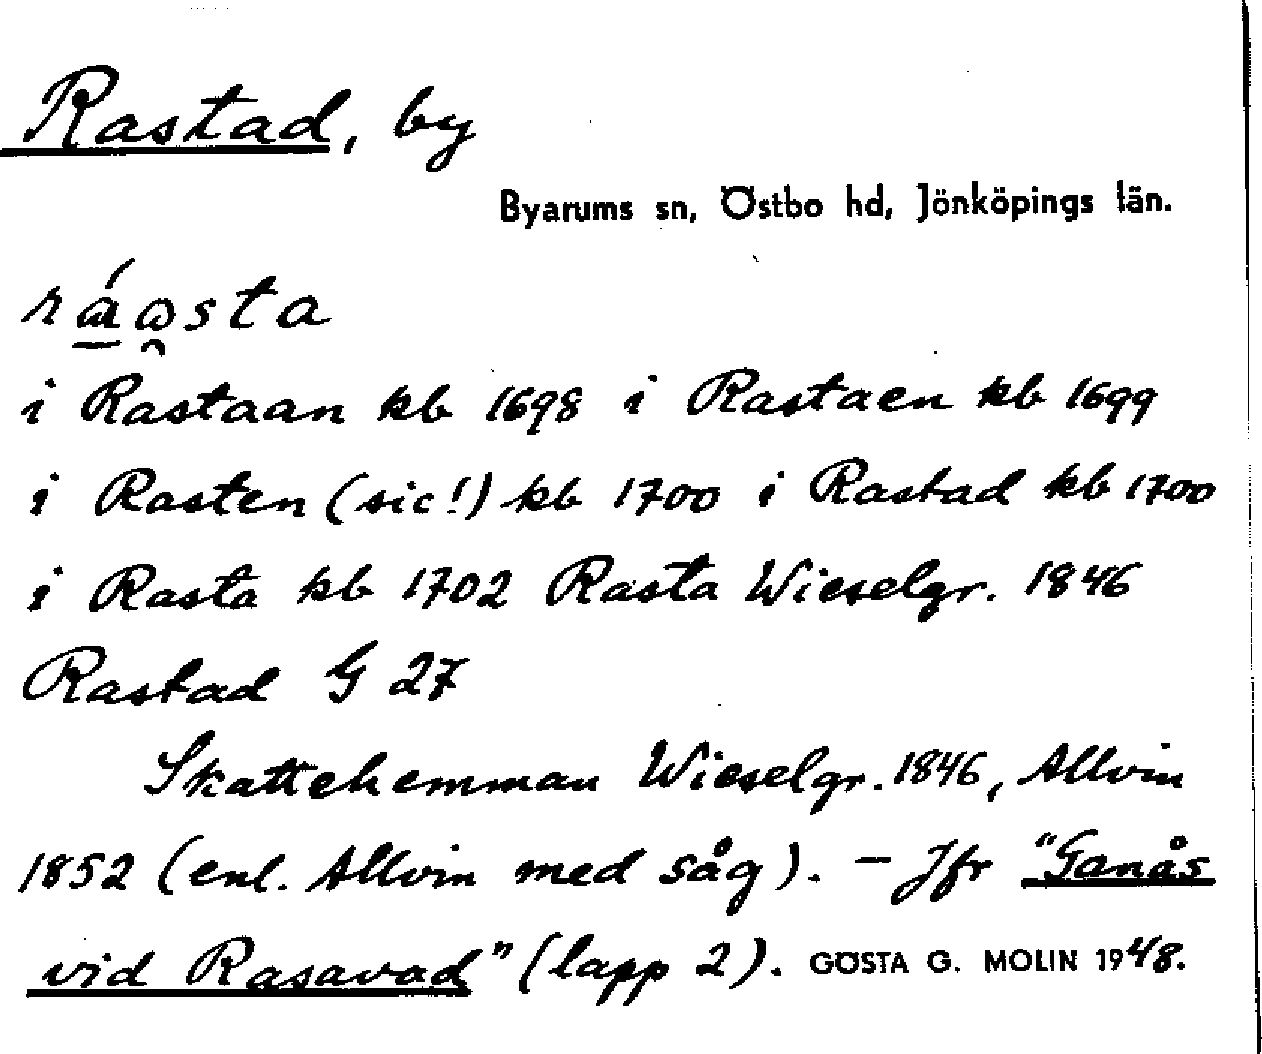 Rastad, by
Byarums sn, Östbo hd, Jönköpings län.
i Rastaan kb 1698 i Rastaen kb 1699
i Rasten (sic!) kb 1700 i Rastad kb 1700
i Rasta kb 1702 Rasta Wieselgr. 1846
Rastad G 27
Skattehemman Wieselgr. 1846, Allvin
1852 (enl. Allvin med såg). – Jfr "Ganås
vid Rasavad" (lapp 2). GÖSTA G. MOLIN 1948.